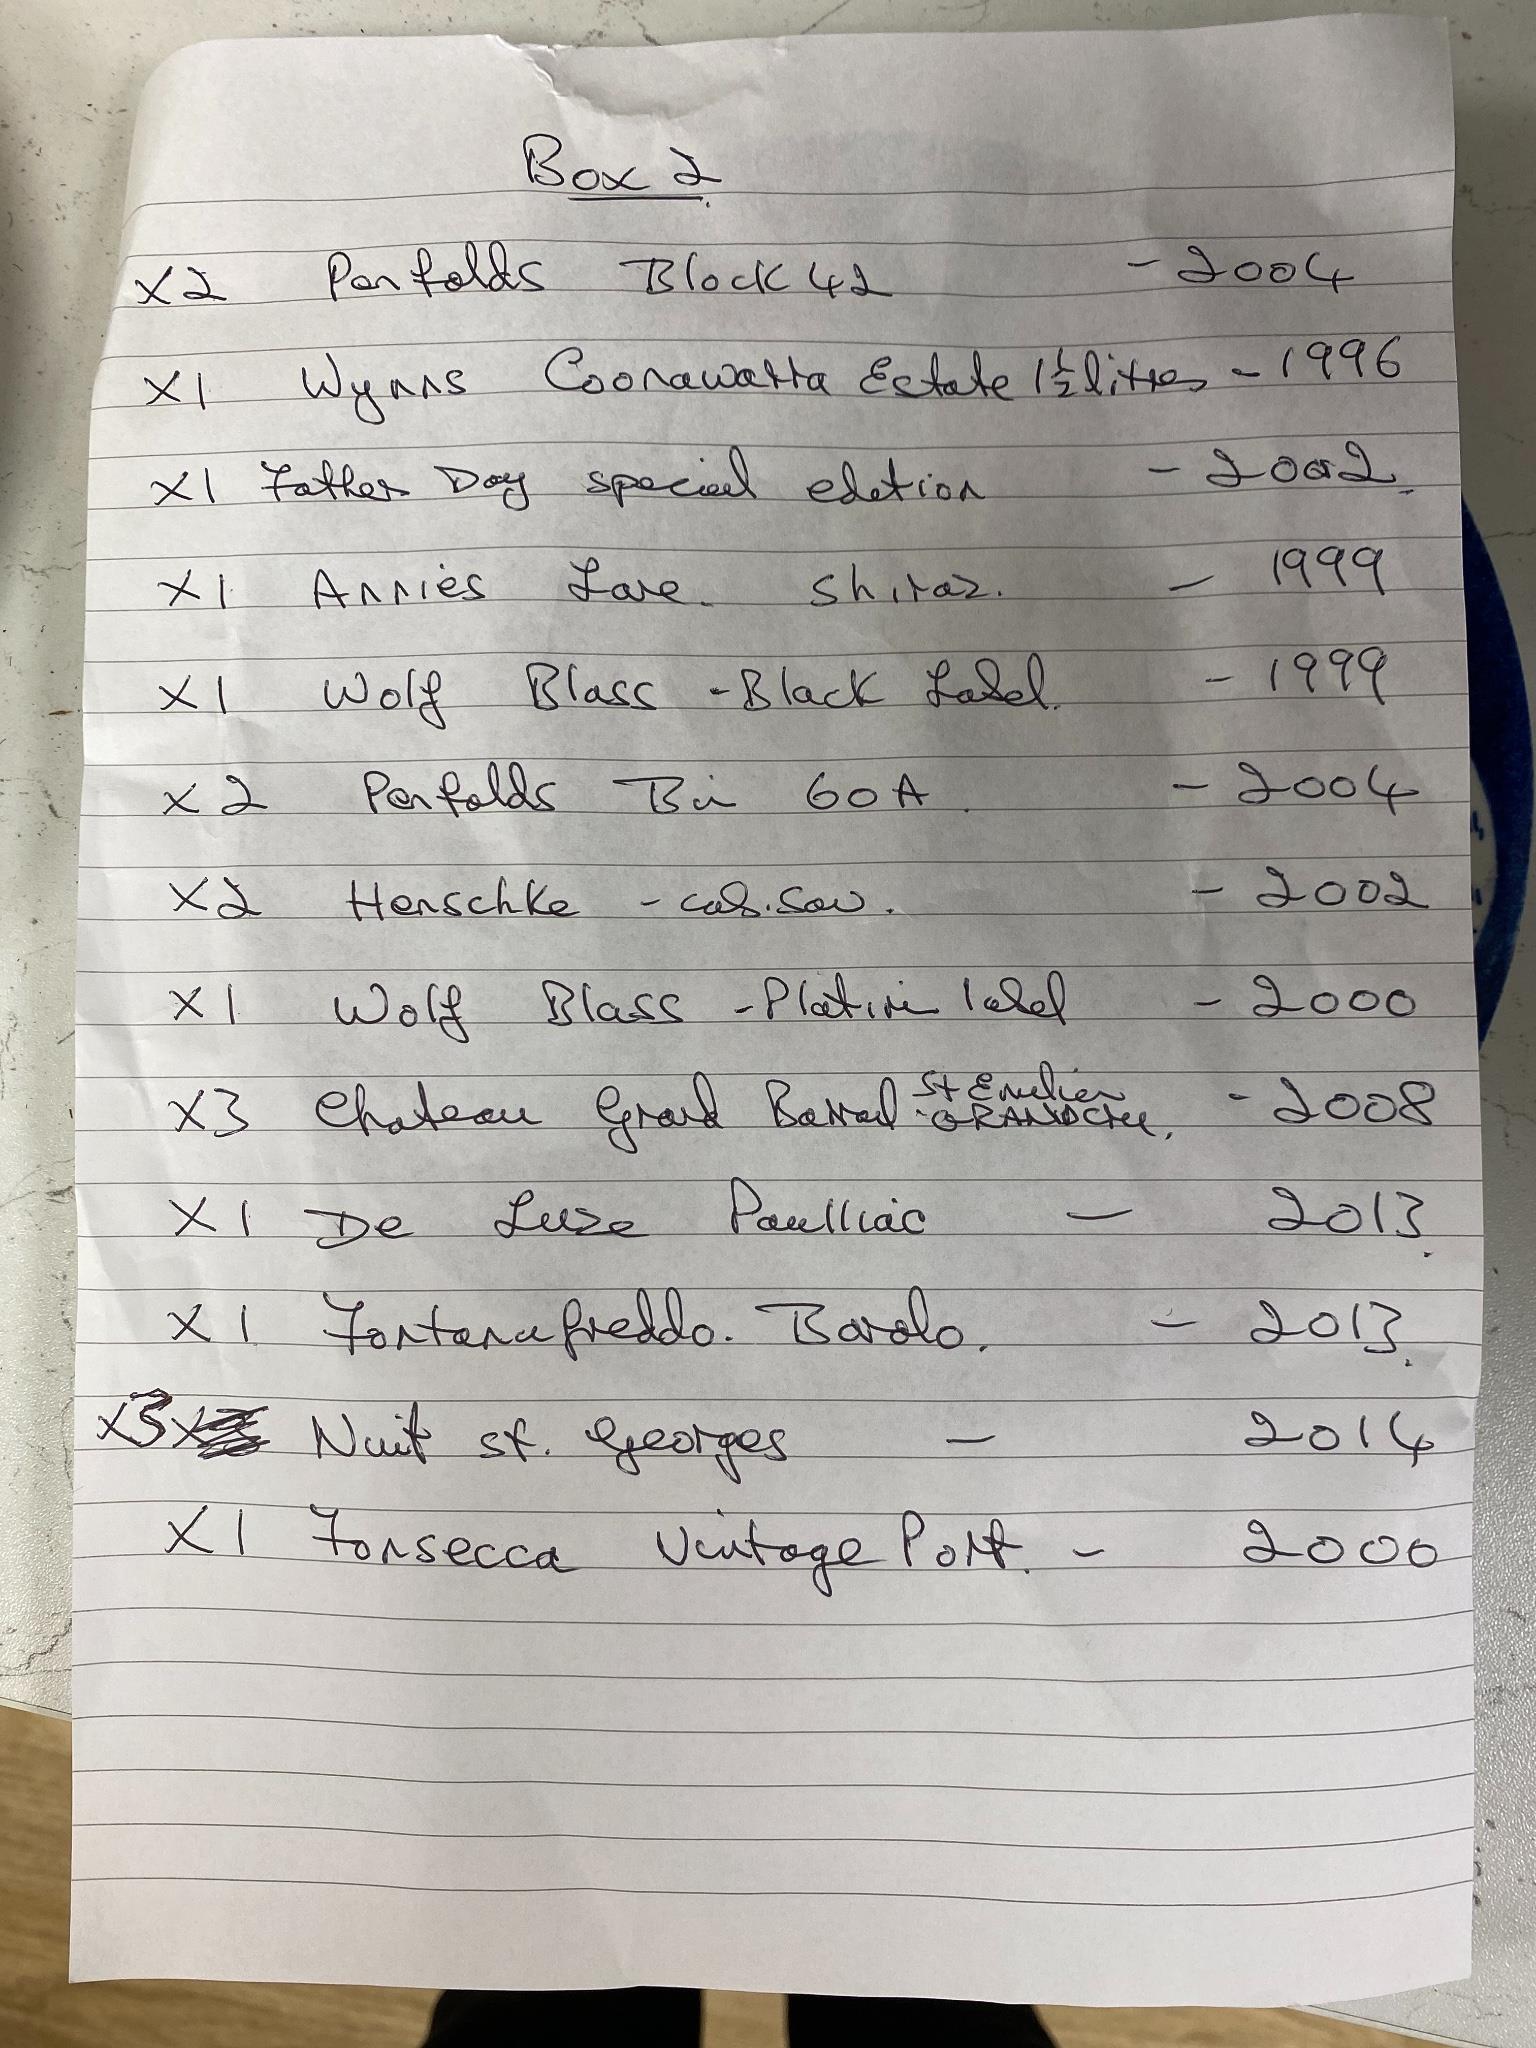 Box 2
x2 Penfolds Block 42 - 2004
x1 Wynns Coonawarra Estate 1½ litres - 1996
x1 Father Day special edetion - 2002.
x1 Annies Lane. Shiraz. - 1999
x1 Wolf Blass - Black Label. - 1999
x2 Penfolds Bin 60A. - 2004
x2 Henschke - cab.sav. - 2002
x1 Wolf Blass - Platinum label - 2000
x3 Chateau Grand Barrail St Emelien GRANDCRU. - 2008
x1 De Luze Paulliac - 2013.
x1 Fontanafreddo. Barolo. - 2013.
x3 Nuit st. Georges - 2014
x1 Fonsecca Vintage Port. - 2000